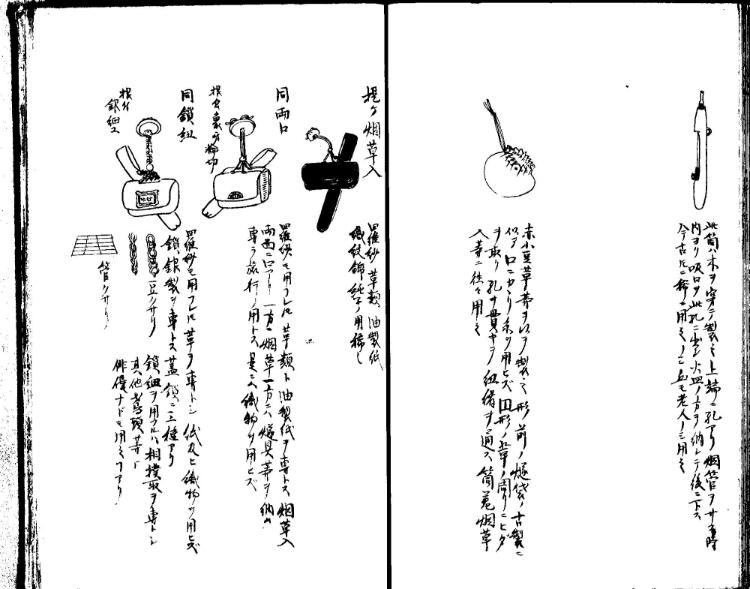 此筒ノ木ヲ穿テ製ス上端ニ孔アリ烟管ヲサス時
内ヨリ吸口ヲ此孔ニ出シ火皿ノ方ヲ納レテ後ニ下ス
今古トモニ稀ニ用之ノミ 老人ノミ用之
赤小豆革帯ヲ以テ製ス形前ノ燧袋ノ古製ニ
似テ口ニカヽリ糸ヲ用ヒズ 円形ノ革ノ周リニヒダ
ヲ取リ孔ヲ貫キテ紐緒ヲ通ス 筒差烟草
入等ニ往々用之
提ケ烟草入
羅紗 革類 油製紙
同両口
羅紗ヲ用フレトモ革類ト油製紙ヲ専トス 烟草入
両面ニ口アリ一方ニ烟草一方ニハ燧具等ヲ納ム
専ラ旅行ノ用トス 是ニハ織物ヲ用ヒズ
同鎖紐
根付
銀細工
羅紗モ用フレトモ革ヲ専トシ 紙及ヒ織物ヲ用ヒズ
鎖銀製ヲ専トス 蓋鎖ニ三種アリ
豆クサリ
鎖細ヲ用フルハ相撲取ヲ専トシ
其他鳶頭等ト
俳優ナドモ用ユルアリ
管クサリ